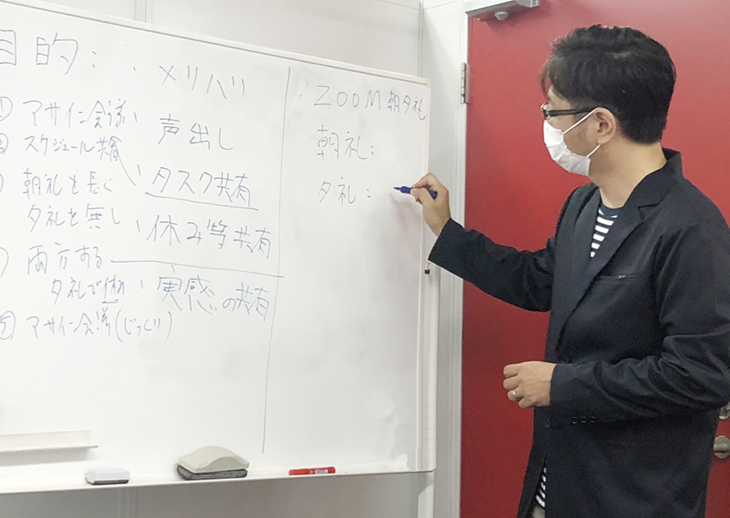 目的:
メリハリ
① マサイン会議
声出し
スケジュール共有
タスク共有
朝礼を長く
夕礼を無し
休み等共有
両方する
夕礼で
実感の共有
⑤ マサイン会議(じっくり)
ZOOM朝夕礼
朝礼:
夕礼: